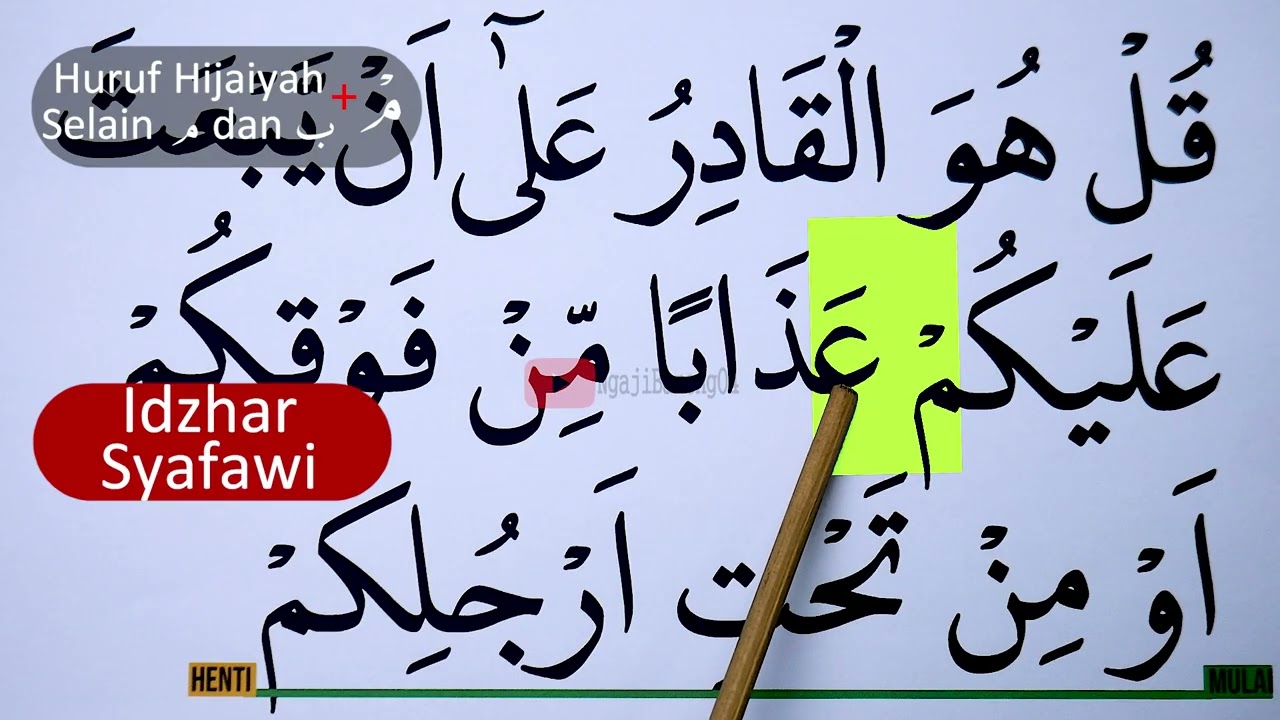 Huruf Hijaiyah + مْ
Selain م dan ب
قُلْ هُوَ الْقَادِرُ عَلٰٓى اَنْ يَّبْعَثَ
عَلَيْكُمْ عَذَابًا مِّنْ فَوْقِكُمْ
NgajiBareng04
Idzhar
Syafawi
اَوْ مِنْ تَحْتِ اَرْجُلِكُمْ
HENTI
MULAI